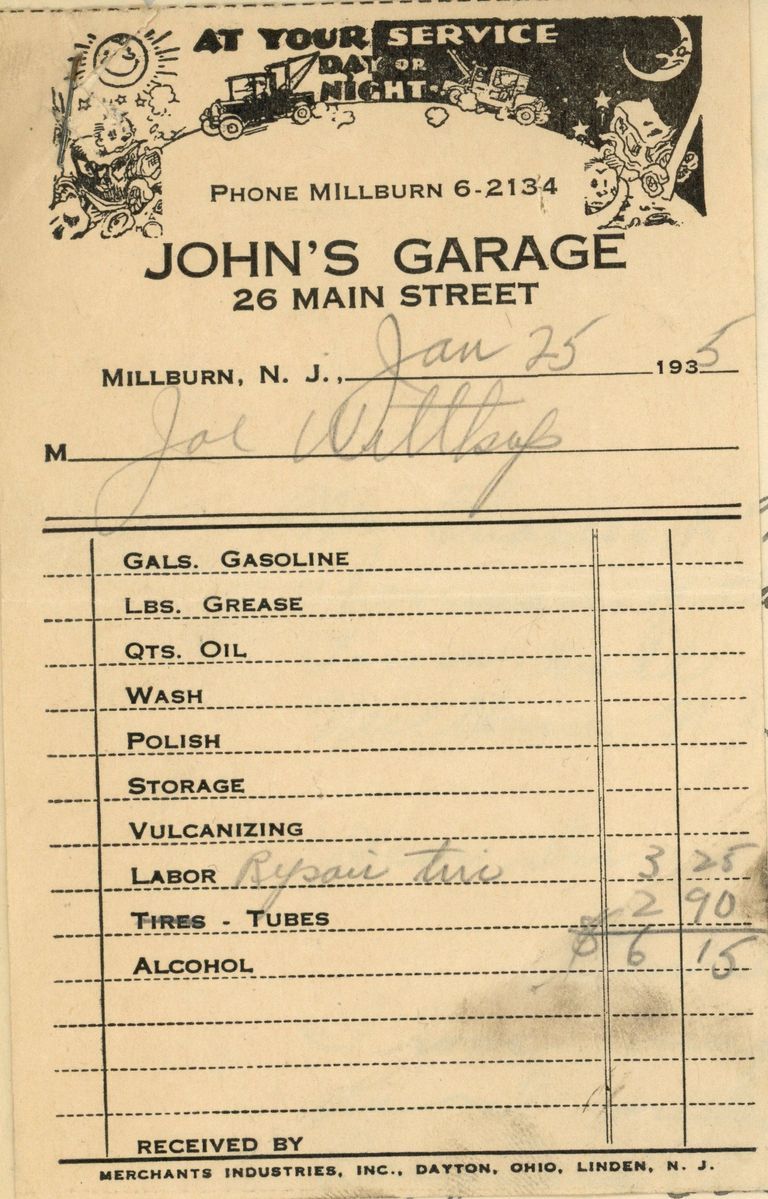 AT YOUR SERVICE
DAY OR
NIGHT
PHONE MILLBURN 6-2134
JOHN'S GARAGE
26 MAIN STREET
MILLBURN, N. J., Jan 25 1935
M Joe
GALS. GASOLINE
LBS. GREASE
QTS. OIL
WASH
POLISH
STORAGE
VULCANIZING
LABOR Repair tire 3 25
TIRES - TUBES 2 90
ALCOHOL $ 6 15
RECEIVED BY
MERCHANTS INDUSTRIES, INC., DAYTON, OHIO, LINDEN, N. J.